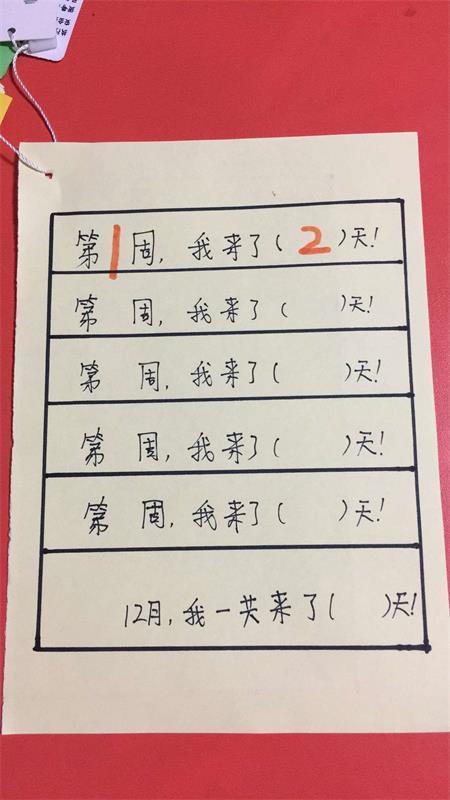 第1周，我来了（2）天！
第 周，我来了（ ）天！
第 周，我来了（ ）天！
第 周，我来了（ ）天！
第 周，我来了（ ）天！
12月，我一共来了（ ）天！